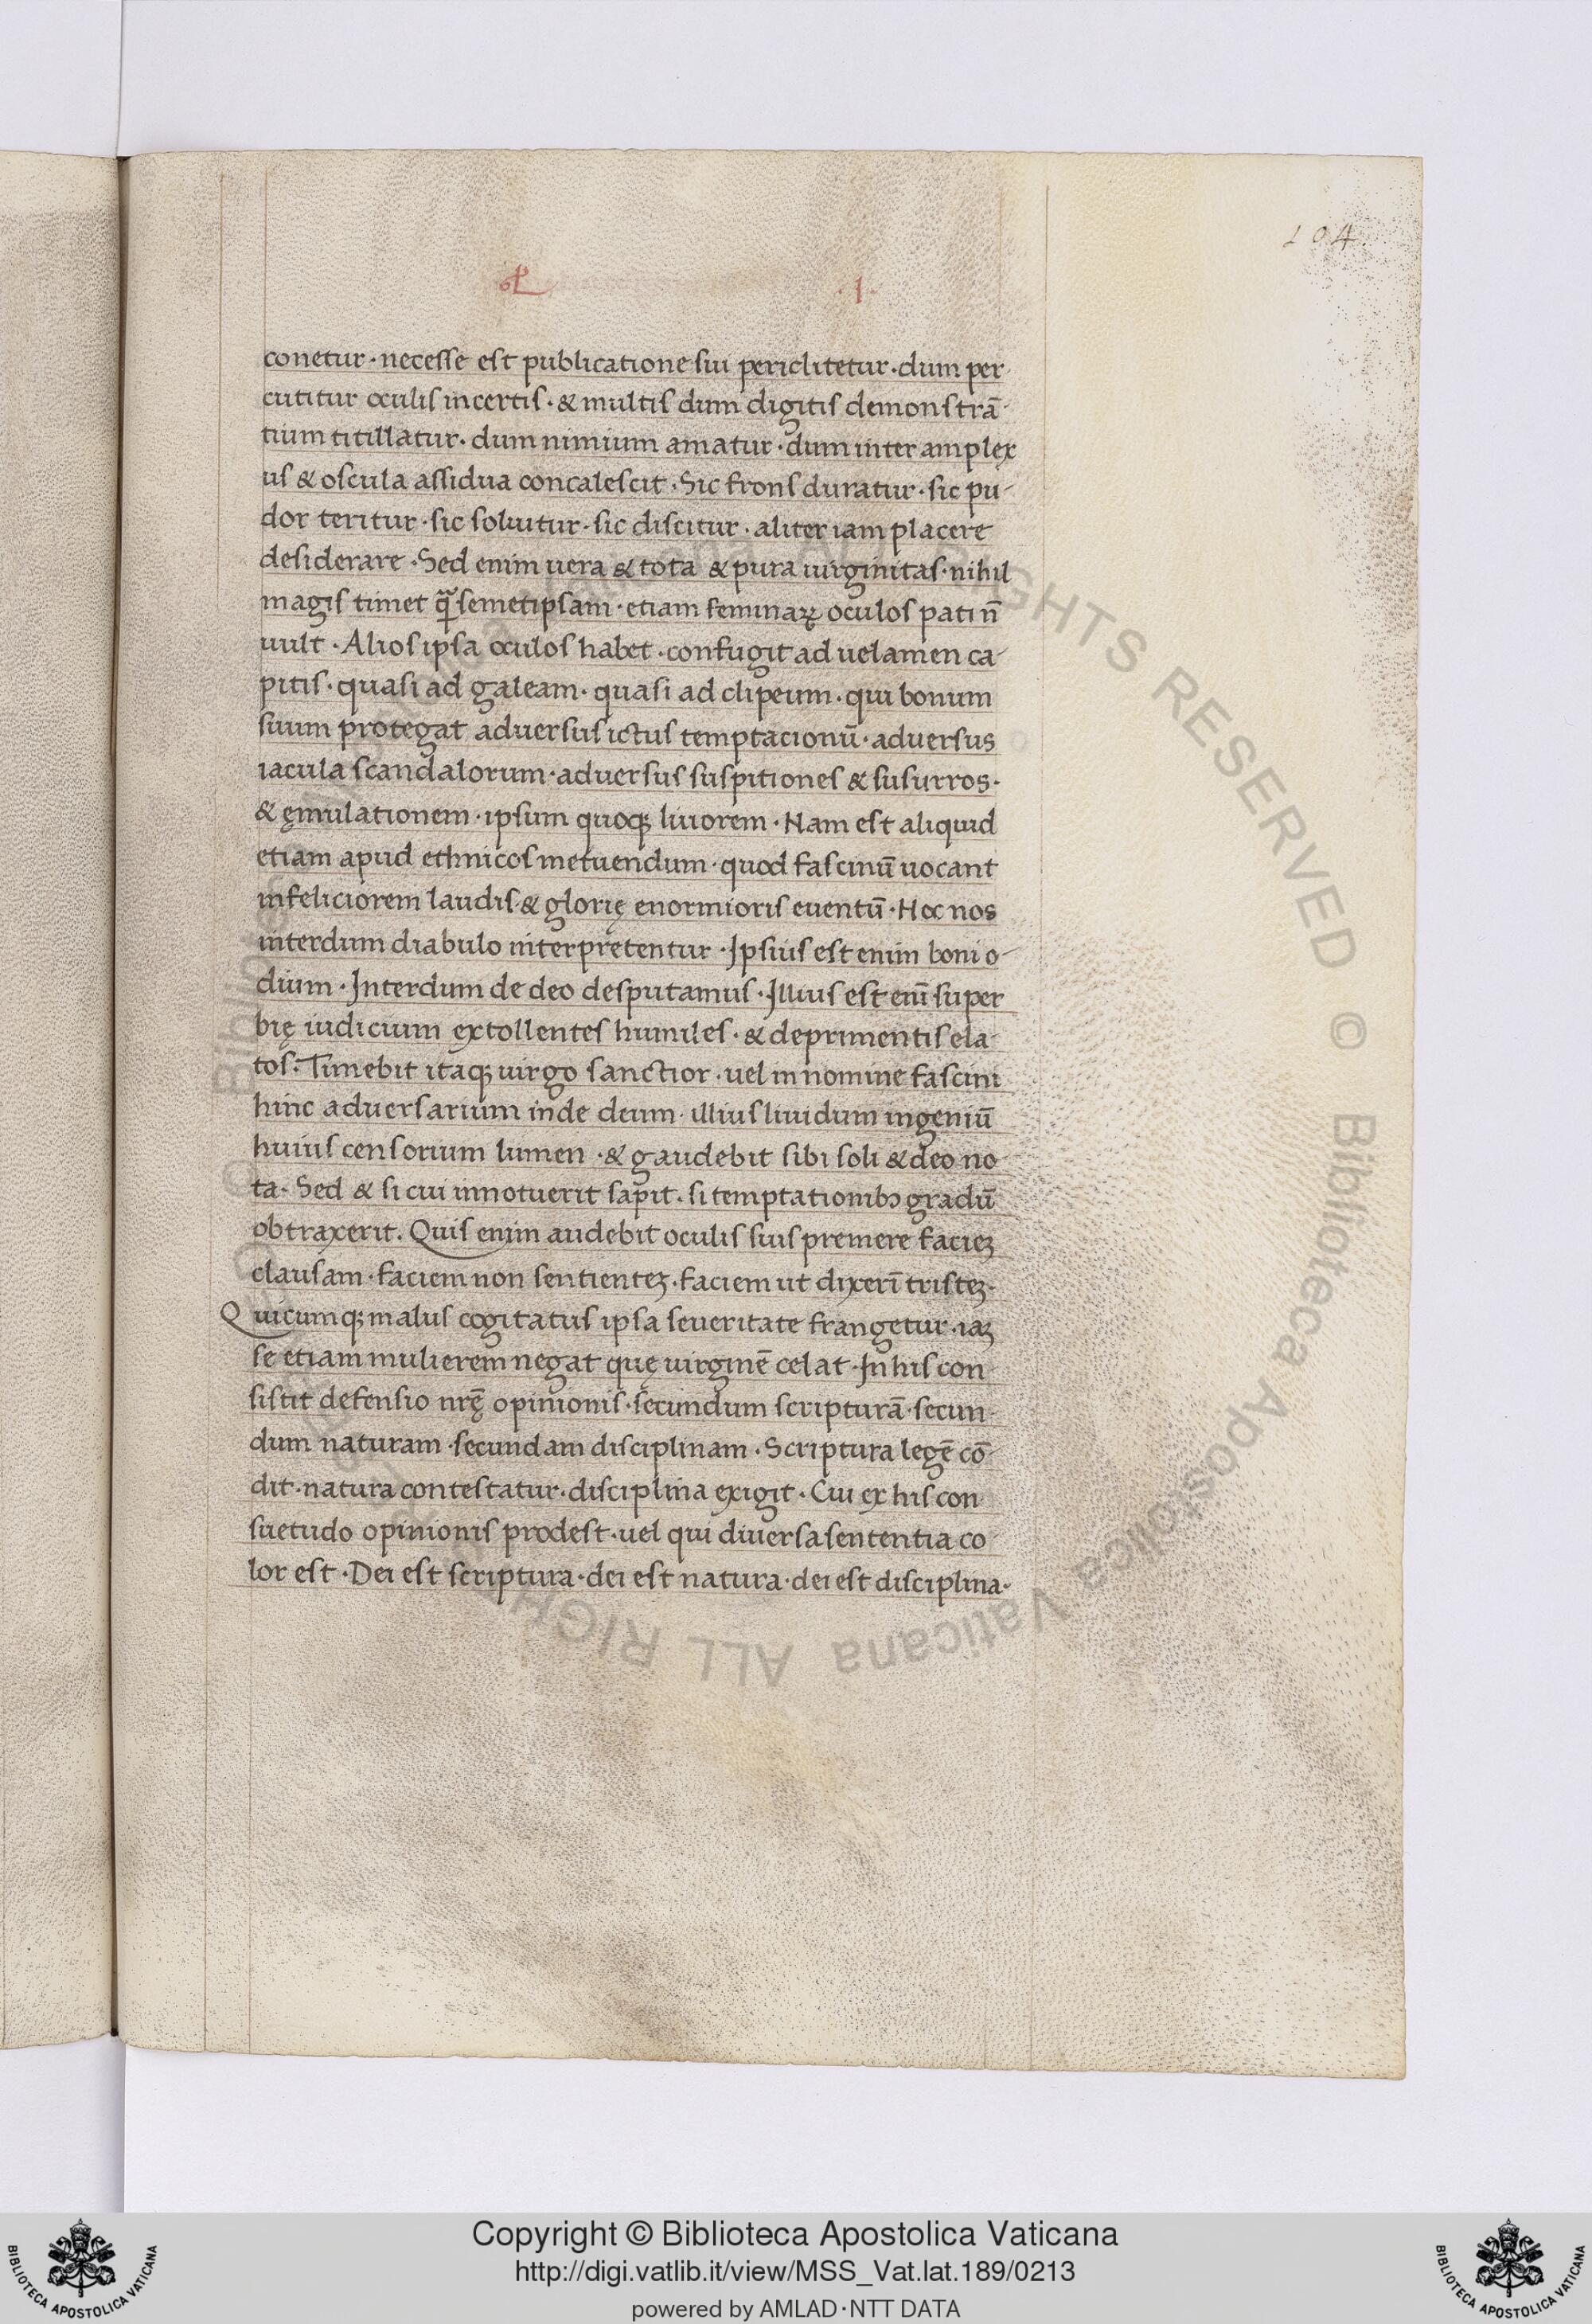 104
.I.
conetur · necesse est publicatione sui periclitetur · dum per
cutitur oculis incertis · & multis dum digitis demonstrā-
tium titillatur · dum nimium amatur · dum inter amplex
us & oscula assidua concalescit · Sic frons duratur · sic pu-
dor teritur · sic soluitur · sic discitur · aliter iam placere
desiderare · Sed enim uera & tota & pura uirginitas · nihil
magis timet q̄ semetipsam · etiam feminaꝝ oculos pati n̄
uult · Alios ipsa oculos habet · confugit ad uelamen ca-
pitis · quasi ad galeam · quasi ad clipeum · qui bonum
suum protegat aduersus ictus temptacionū · aduersus
iacula scandalorum · aduersus suspitiones & susurros ·
& ęmulationem · ipsum quoqꝫ liuorem · Nam est aliquid
etiam apud ethnicos metuendum · quod fascinū uocant
infeliciorem laudis · & glorię enormioris euentū · Hoc nos
interdum diabulo interpretentur · Ipsius est enim boni o-
dium · Interdum de deo desputamus · Illius est eni̅ super
bię iudicium extollentes humiles · & deprimentis ela-
tos · Timebit itaqꝫ uirgo sanctior · uel in nomine fascini
hinc aduersarium inde deum · illius liuidum ingeniū
huius censorium lumen · & gaudebit sibi soli & deo no-
ta · Sed & si cui innotuerit sapit · si temptationibꝫ gradū
obtraxerit. Quis enim audebit oculis suis premere facieꝫ
clausam · faciem non sentienteꝫ · faciem ut dixeri̅ tristeꝫ ·
Quicumqꝫ malus cogitatus ipsa seueritate frangetur · iaꝫ
se etiam mulierem negat quę uirginē celat · In his con-
sistit defensio nr̄ę opinionis · secundum scripturā · secun-
dum naturam · secundam disciplinam · Scriptura legē cō-
dit · natura contestatur · disciplina exigit · Cui ex his con
suetudo opinionis prodest · uel qui diuersa sententia co
lor est · Dei est scriptura · dei est natura · dei est disciplina ·
Biblioteca Apostolica Vaticana ALL RIGHTS RESERVED ©
Copyright © Biblioteca Apostolica Vaticana
http://digi.vatlib.it/view/MSS_Vat.lat.189/0213
powered by AMLAD·NTT DATA
BIBLIOTECA APOSTOLICA VATICANA
BIBLIOTECA APOSTOLICA VATICANA